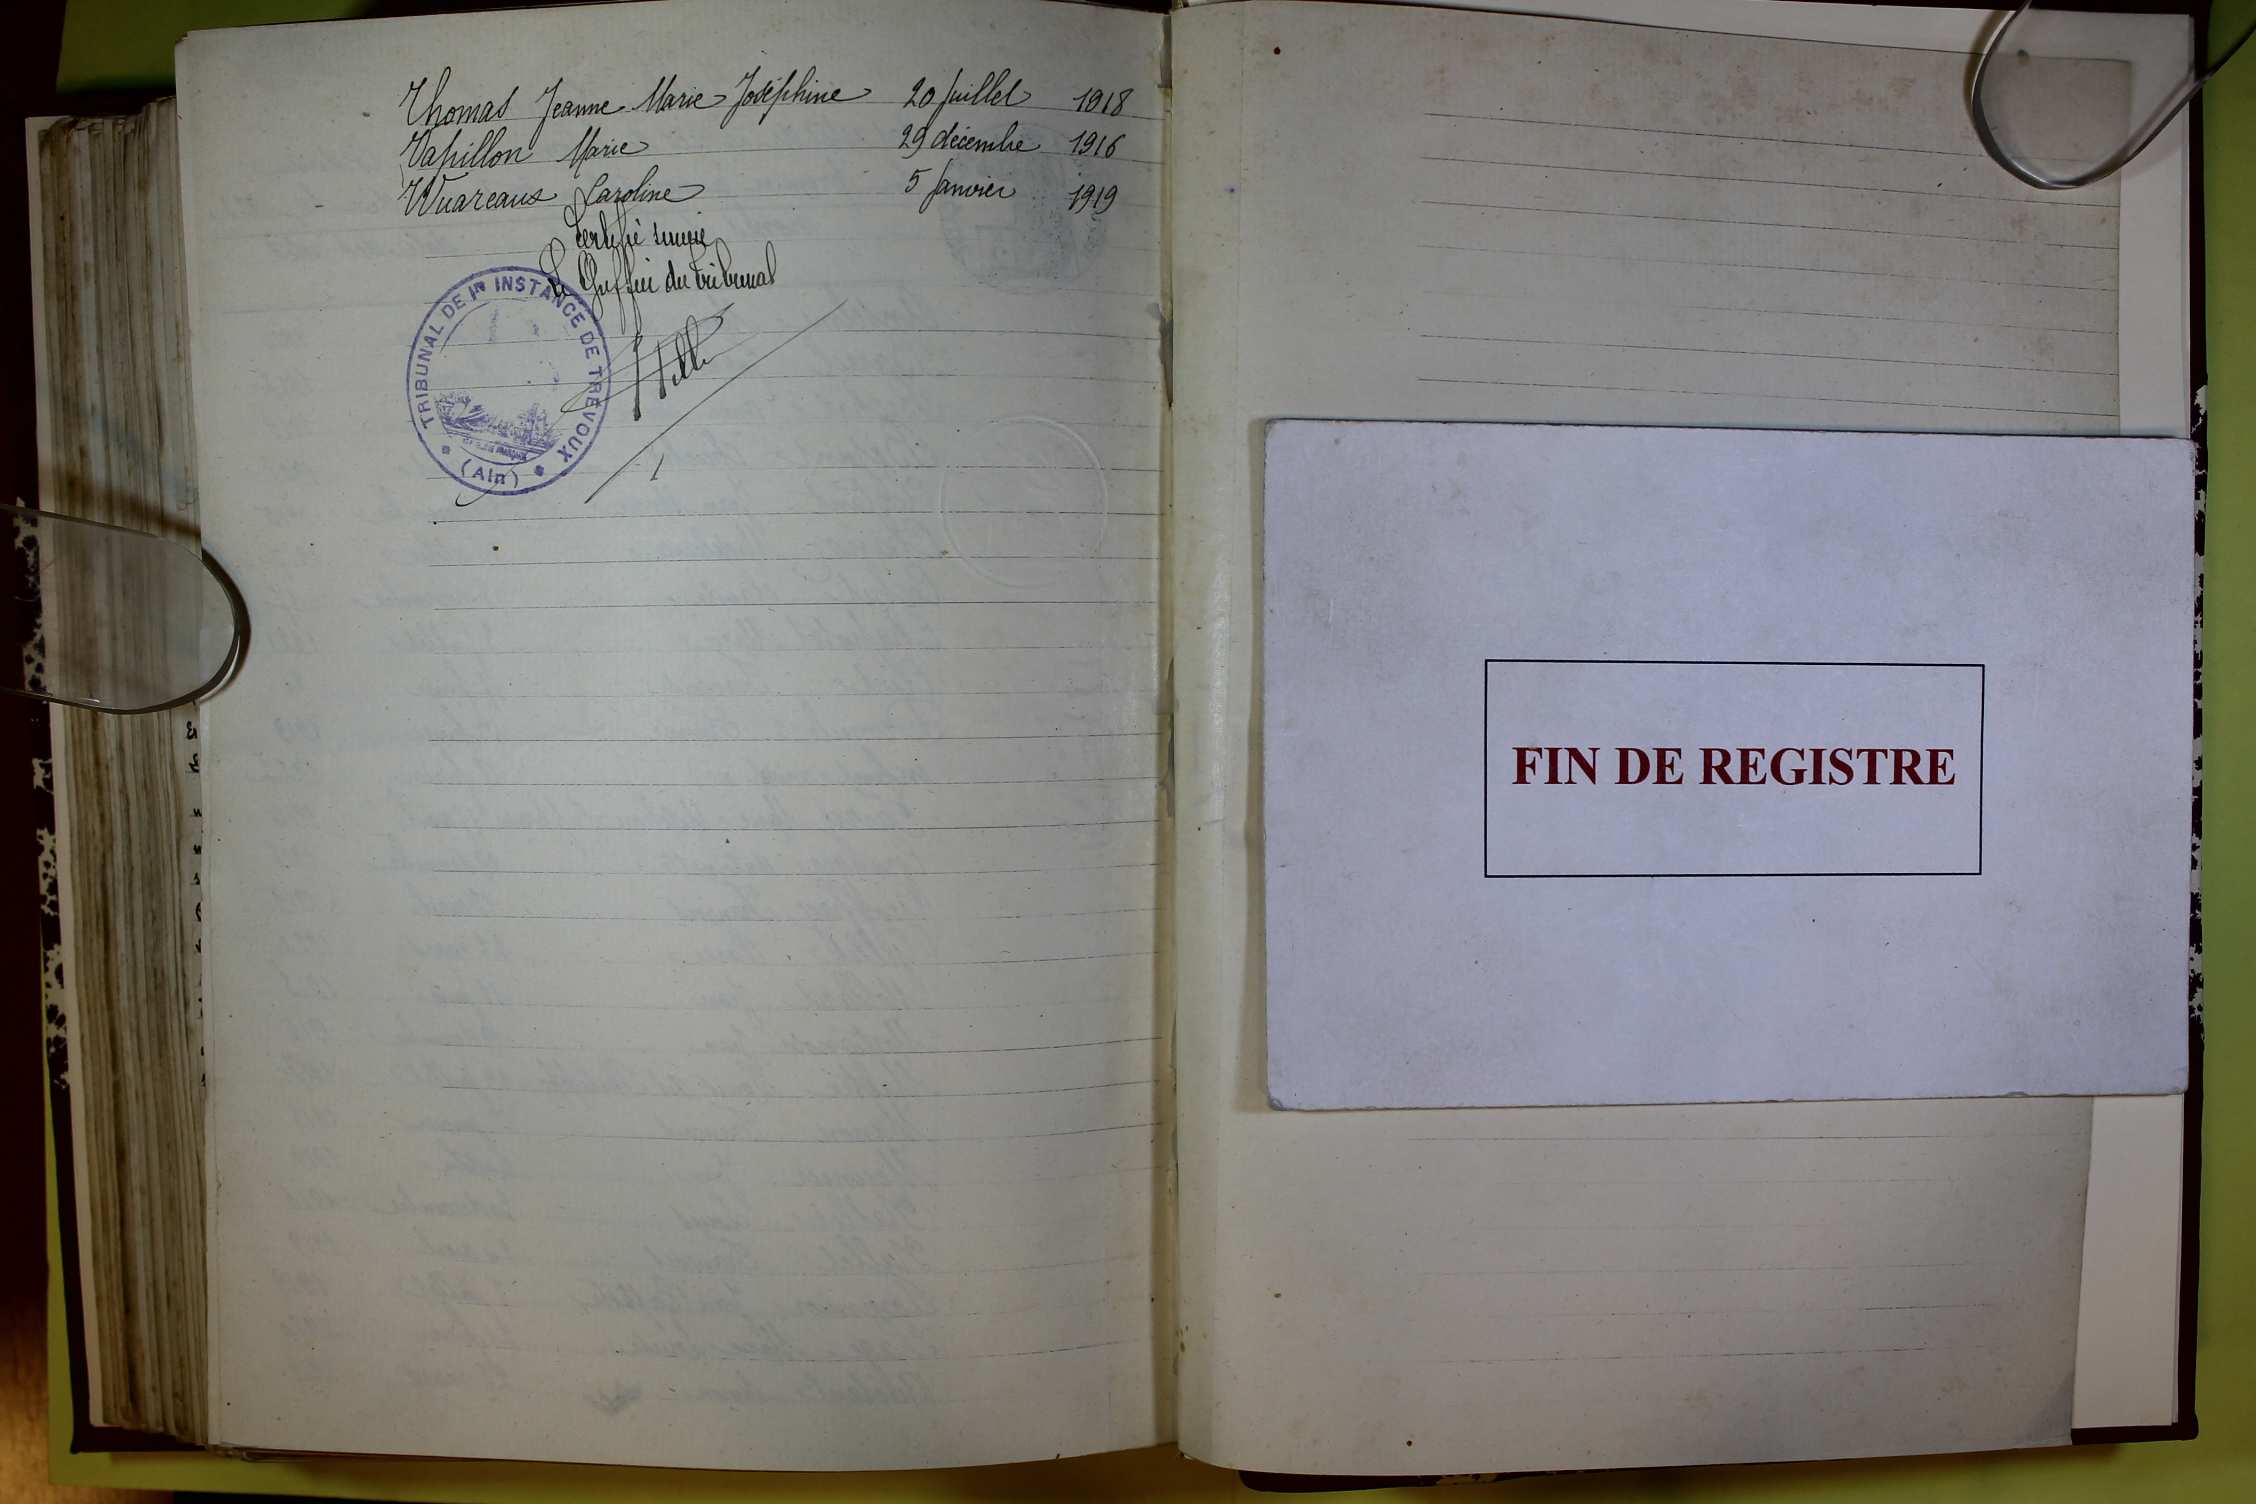 Thomas Jeanne Marie Joséphine 20 Juillet 1918
Vapillon Marie 29 décembre 1916
Wuareaux Caroline 5 Janvier 1919
Certifié sincère
Le Greffier du tribunal
TRIBUNAL DE Ire INSTANCE DE TRÉVOUX
(Ain)
FIN DE REGISTRE